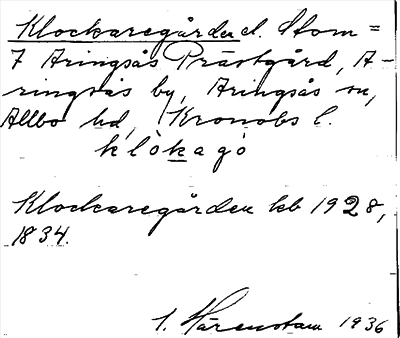 Klockaregården el. Stom=
7 Aringsås Prästgård, A-
ringsås by, Aringsås sn,
Allbo hd, Kronobs l.
klòkagó
Klockaregården kb 1928,
1834.
1. Härenstam 1936